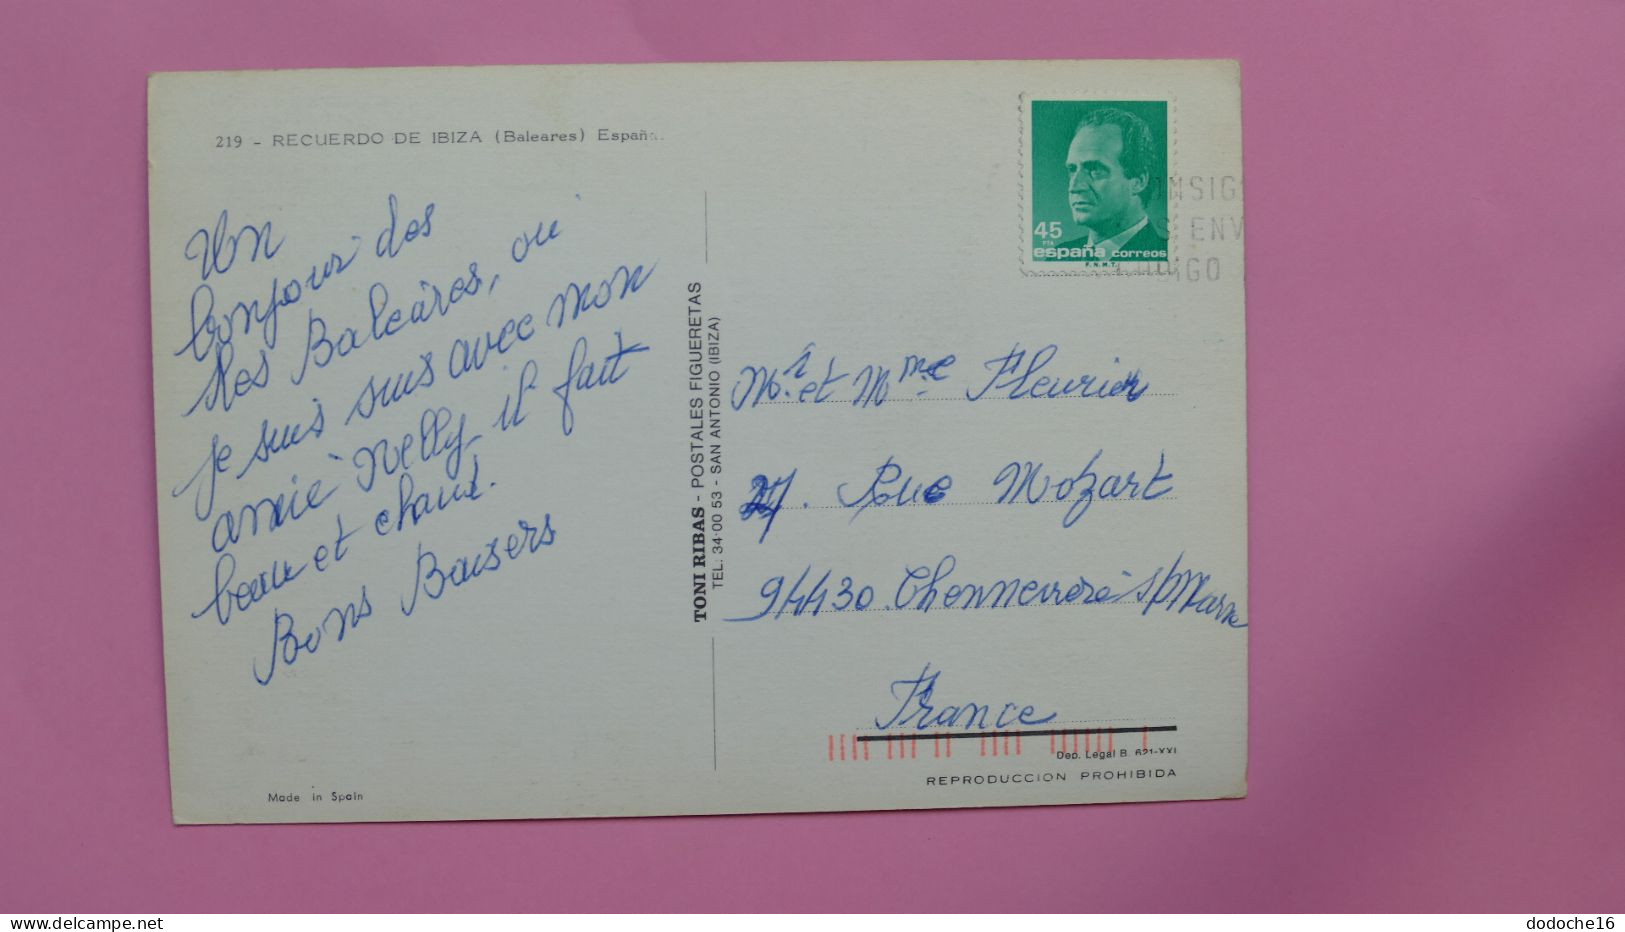 219 - RECUERDO DE IBIZA (Baleares) España.
Un
bonjour des
Iles Baléares, où
je suis suis avec mon
amie Nelly il fait
beau et chaud.
Bons Baisers
TONI RIBAS - POSTALES FIGUERETAS
TEL: 34-00 53 - SAN ANTONIO (IBIZA)
45
PTA
españa correos
F.N.M.T.
ENV
Mr et Mme Fleurier
27. Rue Mozart
94430 Chennevière s/Marne
France
Dep. Legal B. 621-XXI
REPRODUCCION PROHIBIDA
Made in Spain
www.delcampe.net
dodoche16